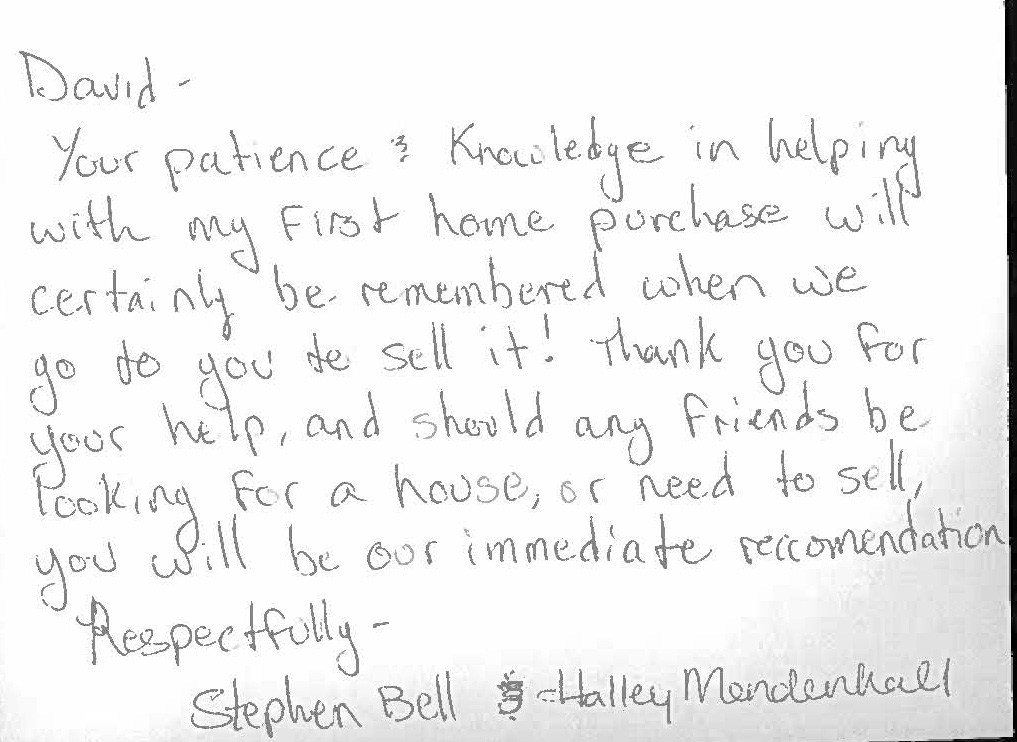 David -
Your patience & Knowledge in helping
with my First home purchase will
certainly be remembered when we
go to you to sell it! Thank you for
your help, and should any friends be
looking for a house, or need to sell,
you will be our immediate reccomendation
Respectfully -
Stephen Bell & Halley Mendenhall